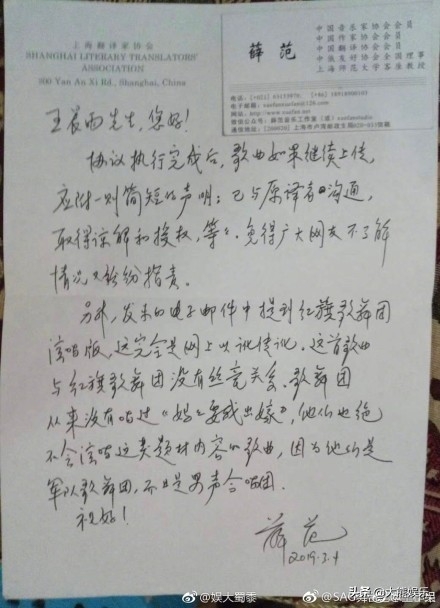 上海翻译家协会
SHANGHAI LITERARY TRANSLATORS'
ASSOCIATION
Yan An Xi Rd., Shanghai, China
薛范
中国音乐家协会会员
中国作家协会会员
中国翻译协会会员
中俄友好协会全国理事
上海师范大学客座教授
王晨雨先生，您好！
协议执行完成后，歌曲如果继续上传，
应附一则简短的声明：已与原译者沟通，
取得谅解和授权，等等。免得广大网友不了解
情况又纷纷指责。
另外，发来的电子邮件中提到红旗歌舞团
演唱版，这完全是网上以讹传讹。这首歌曲
与红旗歌舞团没有丝毫关系。歌舞团
从来没有唱过《妈妈要我出嫁》，他们也绝
不会演唱这类题材内容的歌曲，因为他们是
军队歌舞团，而且是男声合唱团。
祝好！
薛范
2019.3.4
@娱大蜀黍
头条@大熊娱乐